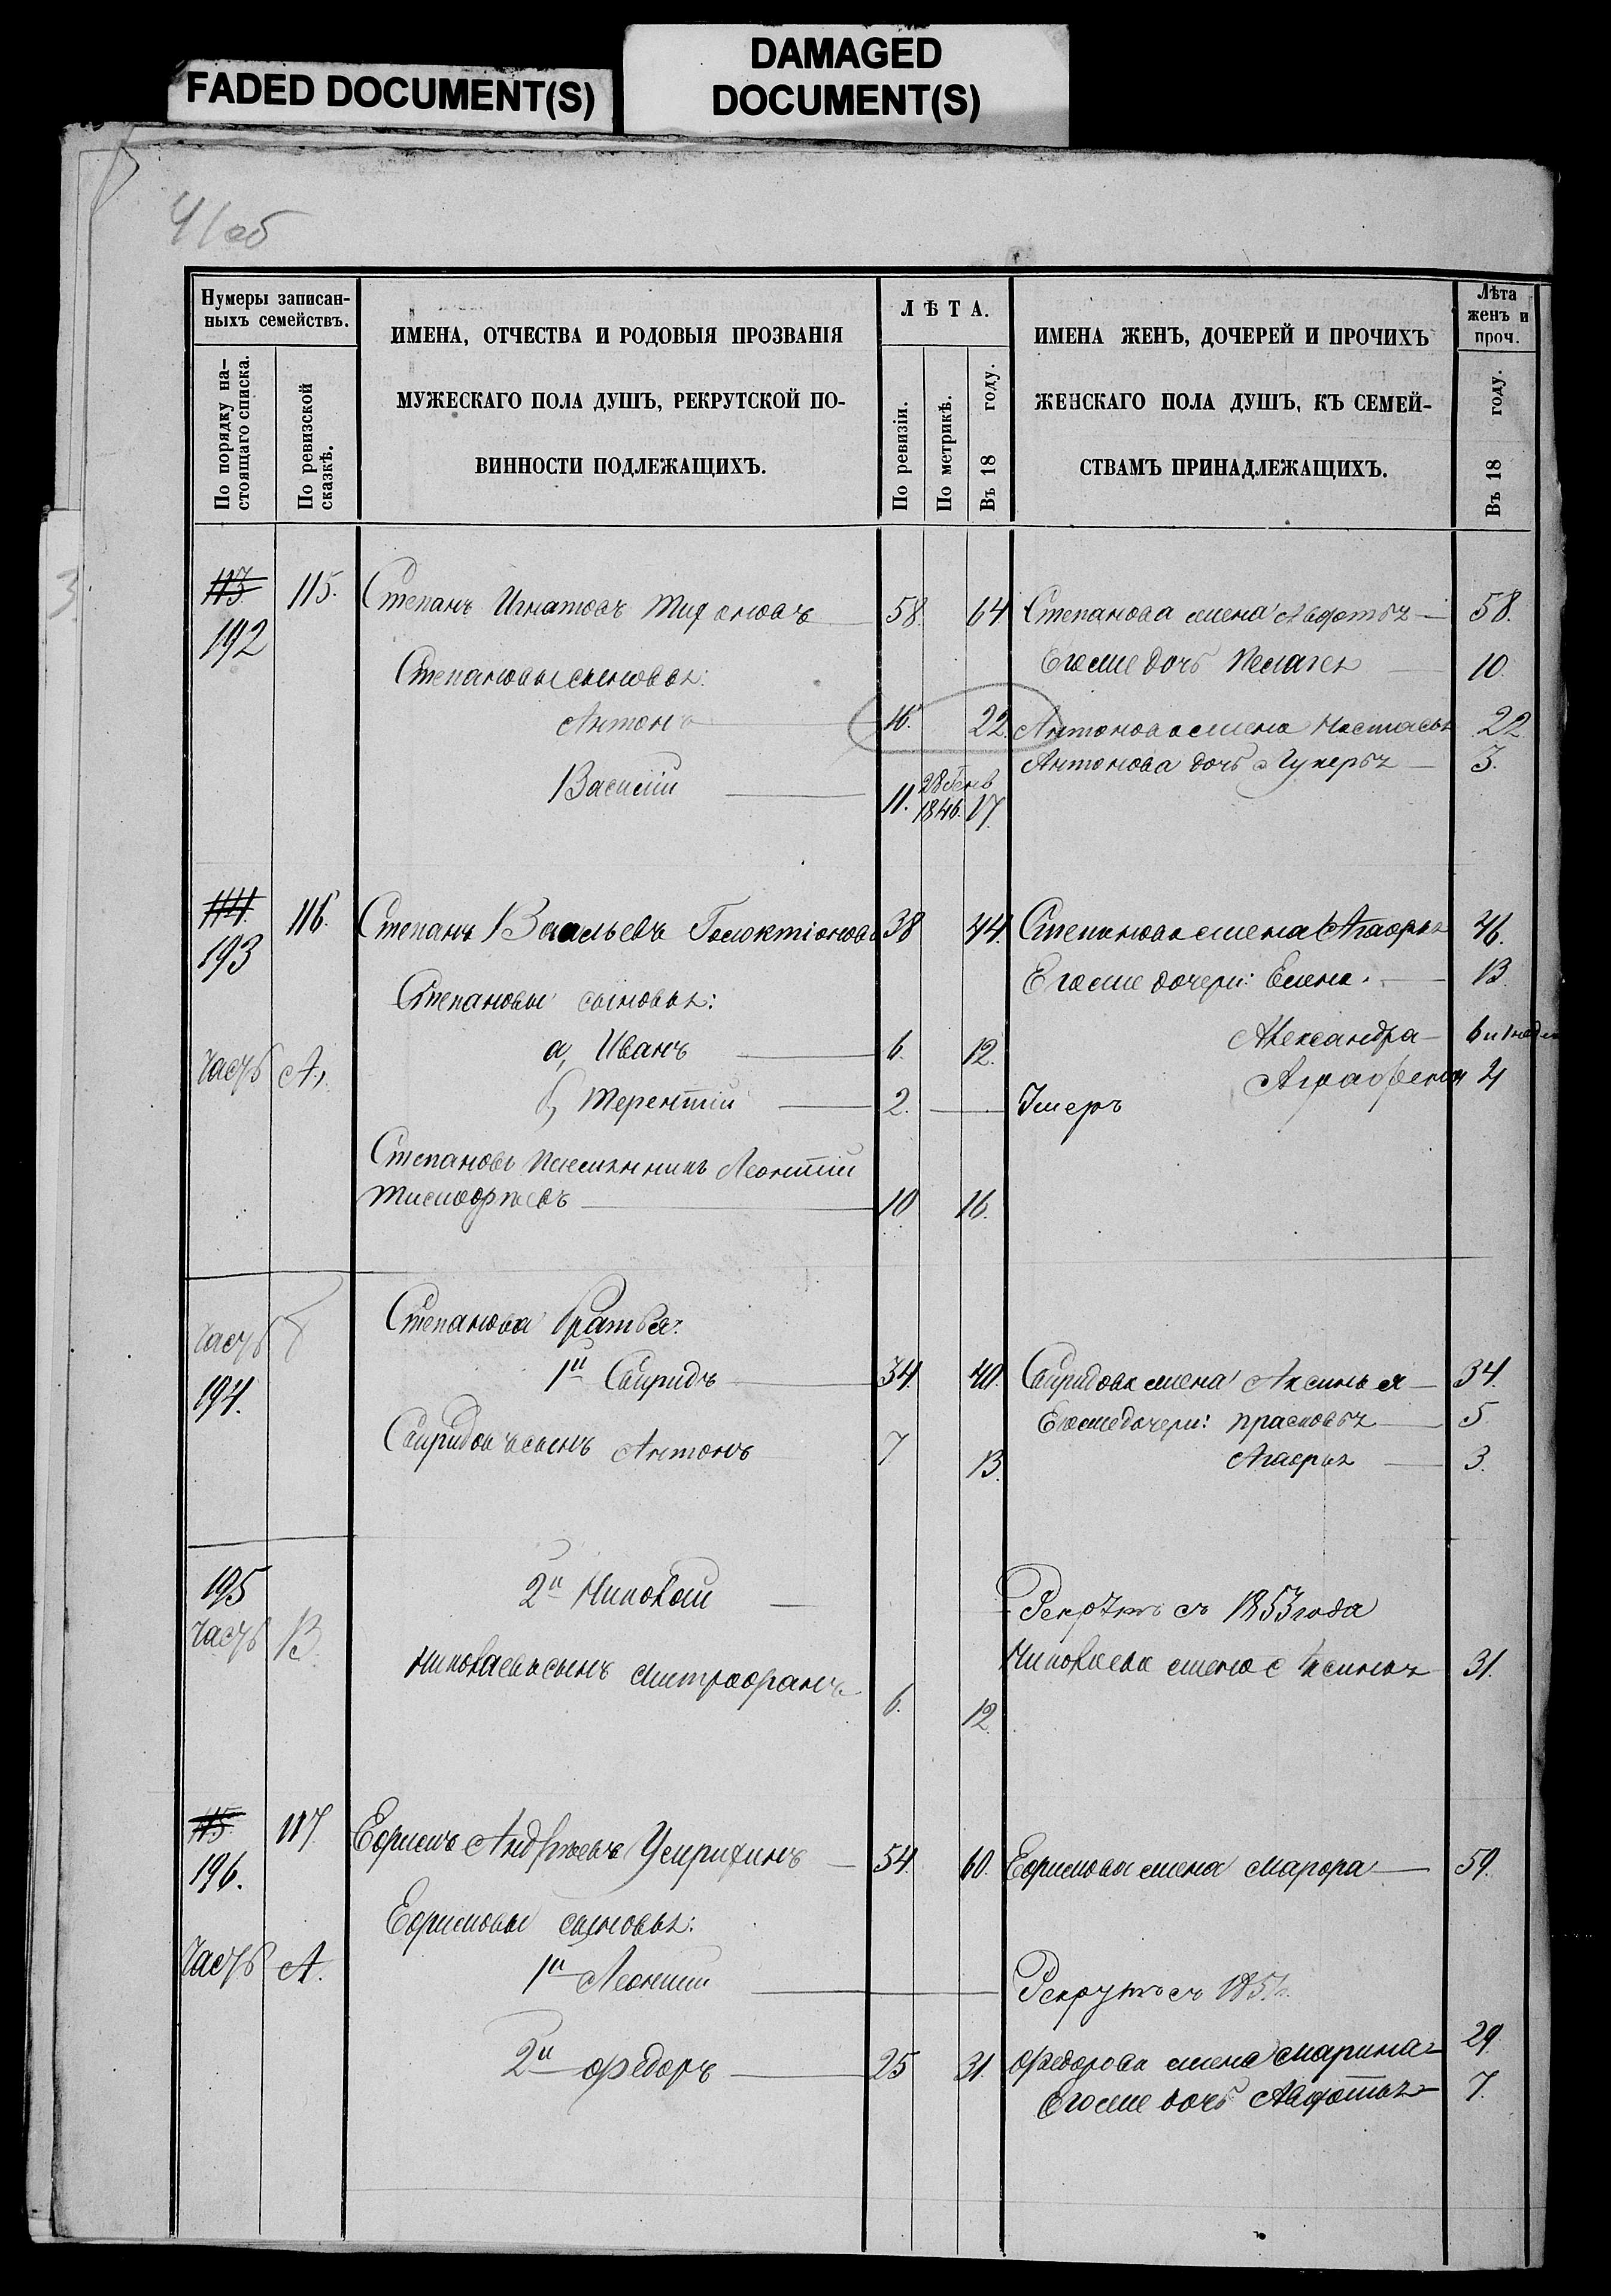 FADED DOCUMENT(S)
DAMAGED
DOCUMENT(S)
41об
Нумеры записан-
ныхъ семействъ.
По порядку на-
стоящаго списка.
По ревизской
сказкѣ.
ИМЕНА, ОТЧЕСТВА И РОДОВЫЯ ПРОЗВАНІЯ
МУЖЕСКАГО ПОЛА ДУШЪ, РЕКРУТСКОЙ ПО-
ВИННОСТИ ПОДЛЕЖАЩИХЪ.
ЛѢТА.
По ревизіи.
По метрикѣ.
Въ 18 году.
ИМЕНА ЖЕНЪ, ДОЧЕРЕЙ И ПРОЧИХЪ
ЖЕНСКАГО ПОЛА ДУШЪ, КЪ СЕМЕЙ-
СТВАМЪ ПРИНАДЛЕЖАЩИХЪ.
Лѣта
женъ и
проч.
Въ 18 году.
3
113 115. Степанъ Игнатовъ 58. 64 Степанова жена Авдотья 58.
192
Степановы сыновья: Егоже дочь Пелагея 10.
Антонъ 16. 22. Антонова жена Настасья 22
Антонова дочь Лукерья 3.
Василій 11. 1846. 17.
114. 116. Степанъ Васильевъ 38 44. Степанова жена Агафья 46.
193
Егоже дочери: Елена 13.
Степановы сыновья:
Александра 6
а, Иванъ 6. 12.
Часть А.
Аграфена 4
б, Терентій 2. Умеръ
Степановъ племянникъ Леонтій
Тимофѣевъ 10 16.
Степанова братья:
Часть Б
1й Свиридъ 34. 40. Свиридова жена Аксинья 34.
194.
Егоже дочери: Прасковья 5.
Свиридовъ сынъ Антонъ 7 13.
Агафья 3.
195 2й Николай Рекрутъ съ 1853 года
Часть В.
Николаевъ сынъ Митрофанъ 6. 12. Николаева жена Аксинья 31.
115. 117. Ефимъ Андрѣевъ 54. 60. Ефимова жена 59.
196.
Ефимовы сыновья:
Часть А.
1й Леонтій Рекрутъ съ
2й Федоръ 25 31. Федорова жена Марина 29.
Егоже дочь Авдотья 7.